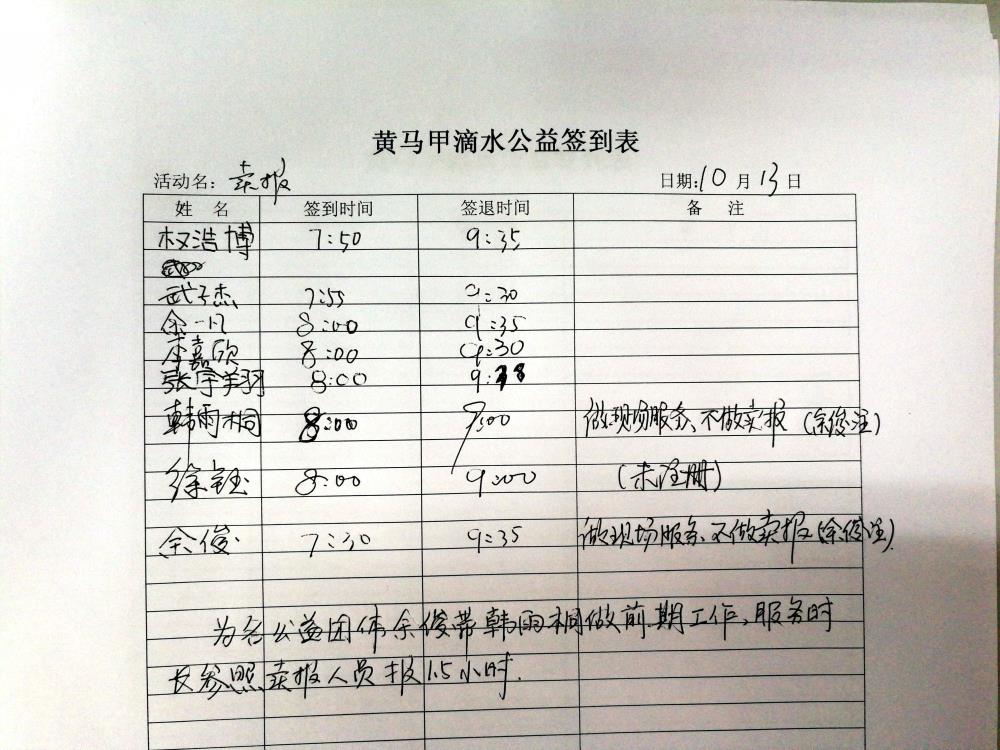 黄马甲滴水公益签到表
活动名：卖报 日期:10月13日
姓 名 签到时间 签退时间 备 注
权浩博 7:50 9:35
武子杰 7:55 9:30
余一凡 8:00 9:35
嘉欣 8:00 9:30
张宇翔 8:00 9:
韩雨桐 8:00 9:00 做现场服务、不做卖报（余俊注）
徐钰 8:00 9:00 （未注册）
余俊 7:30 9:35 做现场服务、不做卖报（余俊注）
为各公益团体余俊带韩雨桐做前期工作、服务时
长参照卖报人员报1.5小时.